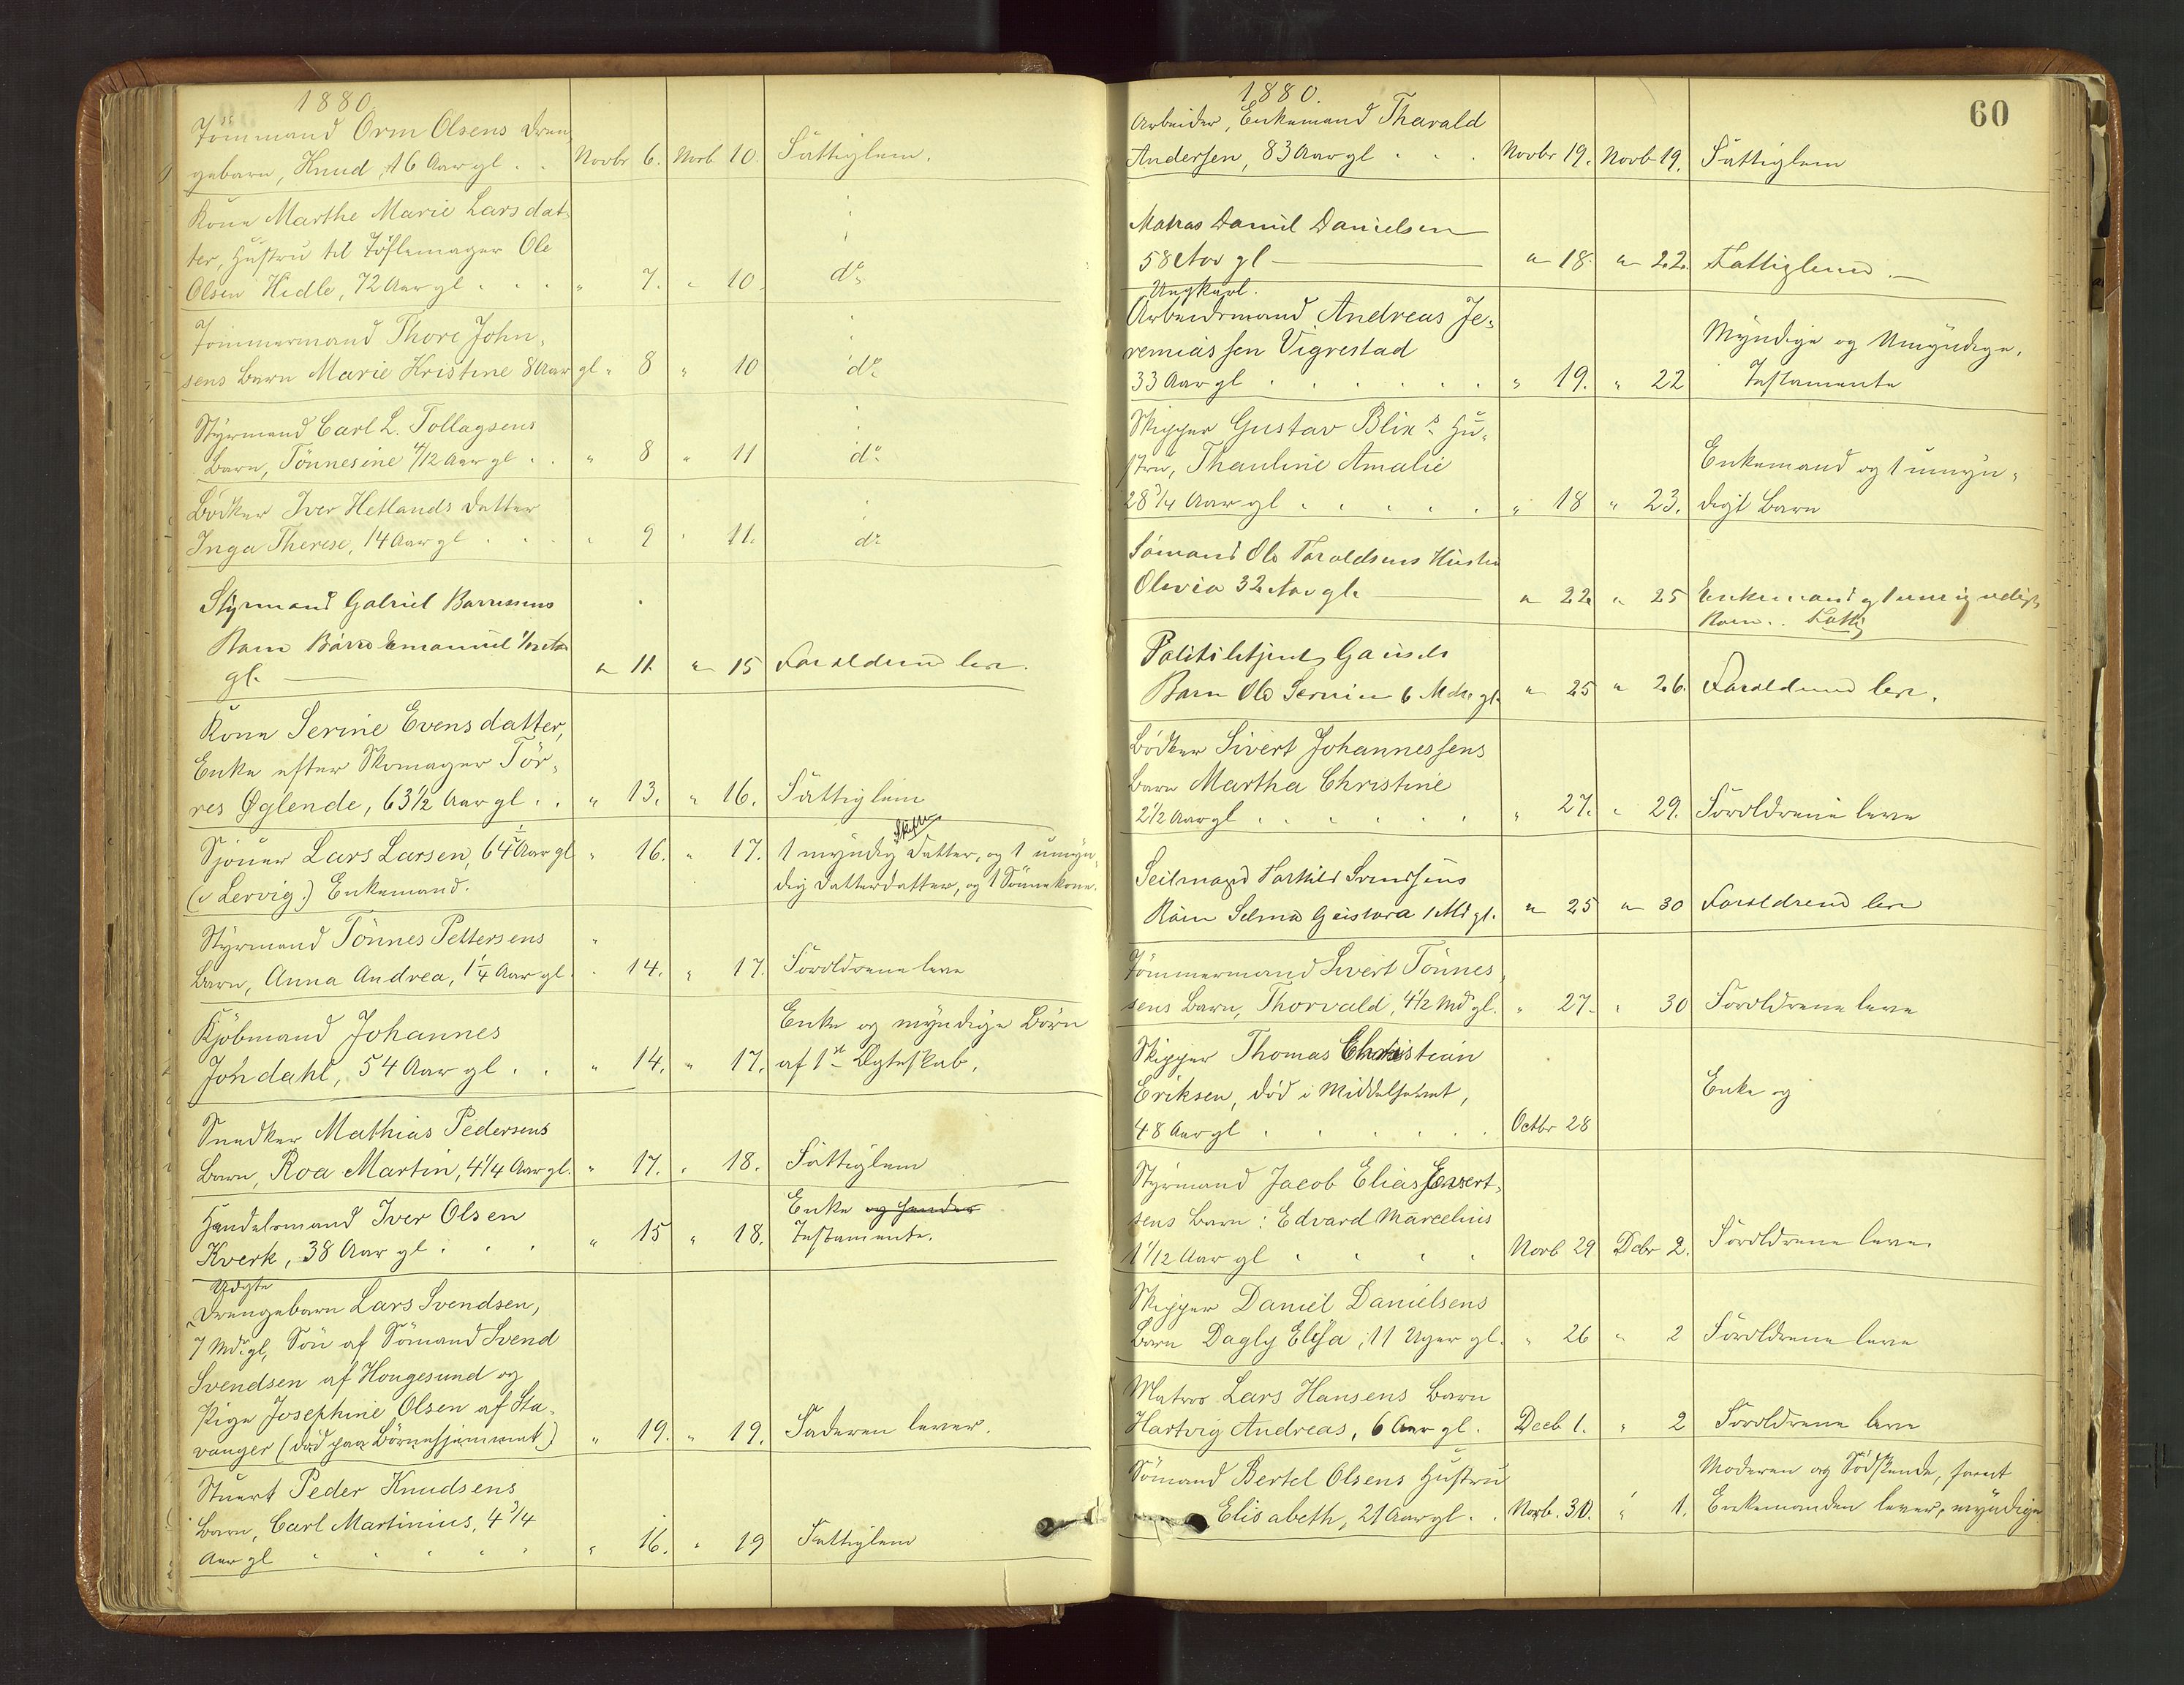 1880.
Tömmand Orm Olsens Dren
gebarn, Knud, 16 Aar gl . . Novbr 6. Novb 10. Fattiglem.
Kone Marthe Marie Larsdat-
ter, Hustru til Töflemager Ole
Olsen Hidle, 72 Aar gl . . . " 7. " 10. do
Tömmermand Thore John-
sens Barn Marie Kristine 8 Aar gl " 8 " 10 do
Styrmand Carl L. Tollagsens
Barn, Tönnesine 4/12 Aar gl . . " 8 " 11 do
Bödker Iver Hetlands Datter
Inga Therese, 14 Aar gl . . . " 9 " 11. do
Styrmand Gabriel
Barn Emanuel
gl. " 11. " 15 Forældrene leve.
Kone Serine Evensdatter,
Enke efter Skomager Tör-
res Øglende, 63 1/2 Aar gl . . " 13. " 16. Fattiglem
Skifte
Sjöuer Lars Larsen, 64 1/2 Aar gl " 16. " 17. 1 myndig Datter, og 1 umyn-
(i Lervig.) Enkemand. dig Datterdatter, og 1 Sönnekone.
Styrmand Tönnes Pettersens
Barn, Anna Andrea, 1 1/4 Aar gl. " 14. " 17. Forældrene leve
Kjöbmand Johannes Enke og myndige Börn
Jöndahl, 54 Aar gl . . " 14. " 17. af 1st Ægteskab.
Snedker Mathias Pedersens
Barn, Roa Martin, 4 1/4 Aar gl. " 17. " 18. Fattiglem
Handelsmand Iver Olsen Enke og
Kverk, 38 Aar gl . . . " 15 " 18. Testamente.
Uægte
Drengebarn Lars Svendsen,
7 Mdr gl, Sön af Sömand Svend
Svendsen af Hougesund og
Pige Josephine Olsen af Sta-
vanger (död paa Börnehjemmet.) " 19. " 19. Faderen lever.
Stuert Peder Knudsens
Barn, Carl Martinius, 4 3/4
Aar gl . . . . . " 16. " 19 Fattiglem
60
1880.
Arbeider, Enkemand Tharald
Andersen, 83 Aar gl . . . Novbr 19. Novb 19. Fattiglem
Matros Daniel Danielsen
58 Aar gl " 18. " 22. Fattiglem.
Ungkarl.
Arbeidsmand Andreas Je-
remiassen Vigrestad Myndige og Umyndige.
33 Aar gl . . . . . . " 19. " 22 Testamente
Skipper Gustav Blix's Hu-
stru, Thauline Amalie Enkemand og 1 umyn-
28 3/4 Aar gl . . . . . " 18 " 23. digt Barn
Sömand Ole Taroldsens Hustru
Olevia 32 Aar gl. " 22 " 25 Enkemand og 1 umyndigt
Barn.. Fattig
Politibetjent
Barn Ole 6 Mdr gl. " 25 " 26. Forældrene leve.
Bödker Sivert Johannessens
Barn Martha Christine
2 1/2 Aar gl . . . . . . " 27. " 29. Forældrene leve
Seilmager Svendsens
Barn Selma Gustava 1 Md gl. " 25 " 30 Forældrene leve
Tömmermand Sivert Tönnes-
sens Barn, Thorvald, 4 1/2 Md gl. " 27. " 30 Forældrene leve
Skipper Thomas Christian
Eriksen, död i Middelhavet, Enke og
48 Aar gl . . . . . . Octbr 28
Styrmand Jacob Elias Evert-
sens Barn: Edvard Marcelius
1 1/12 Aar gl . . . . Novb 29 Debr 2. Forældrene leve.
Skipper Daniel Danielsens
Barn Dagly Elisa, 11 Uger gl. " 26 " 2 Forældrene leve
Matros Lars Hansens Barn
Hartvig Andreas, 6 Aar gl. Decb 1. " 2 Forældrene leve
Sömand Bertel Olsens Hustru Moderen og Södskende, samt
Elisabeth, 21 Aar gl. . Novb. 30. " 1. Enkemanden lever, myndige